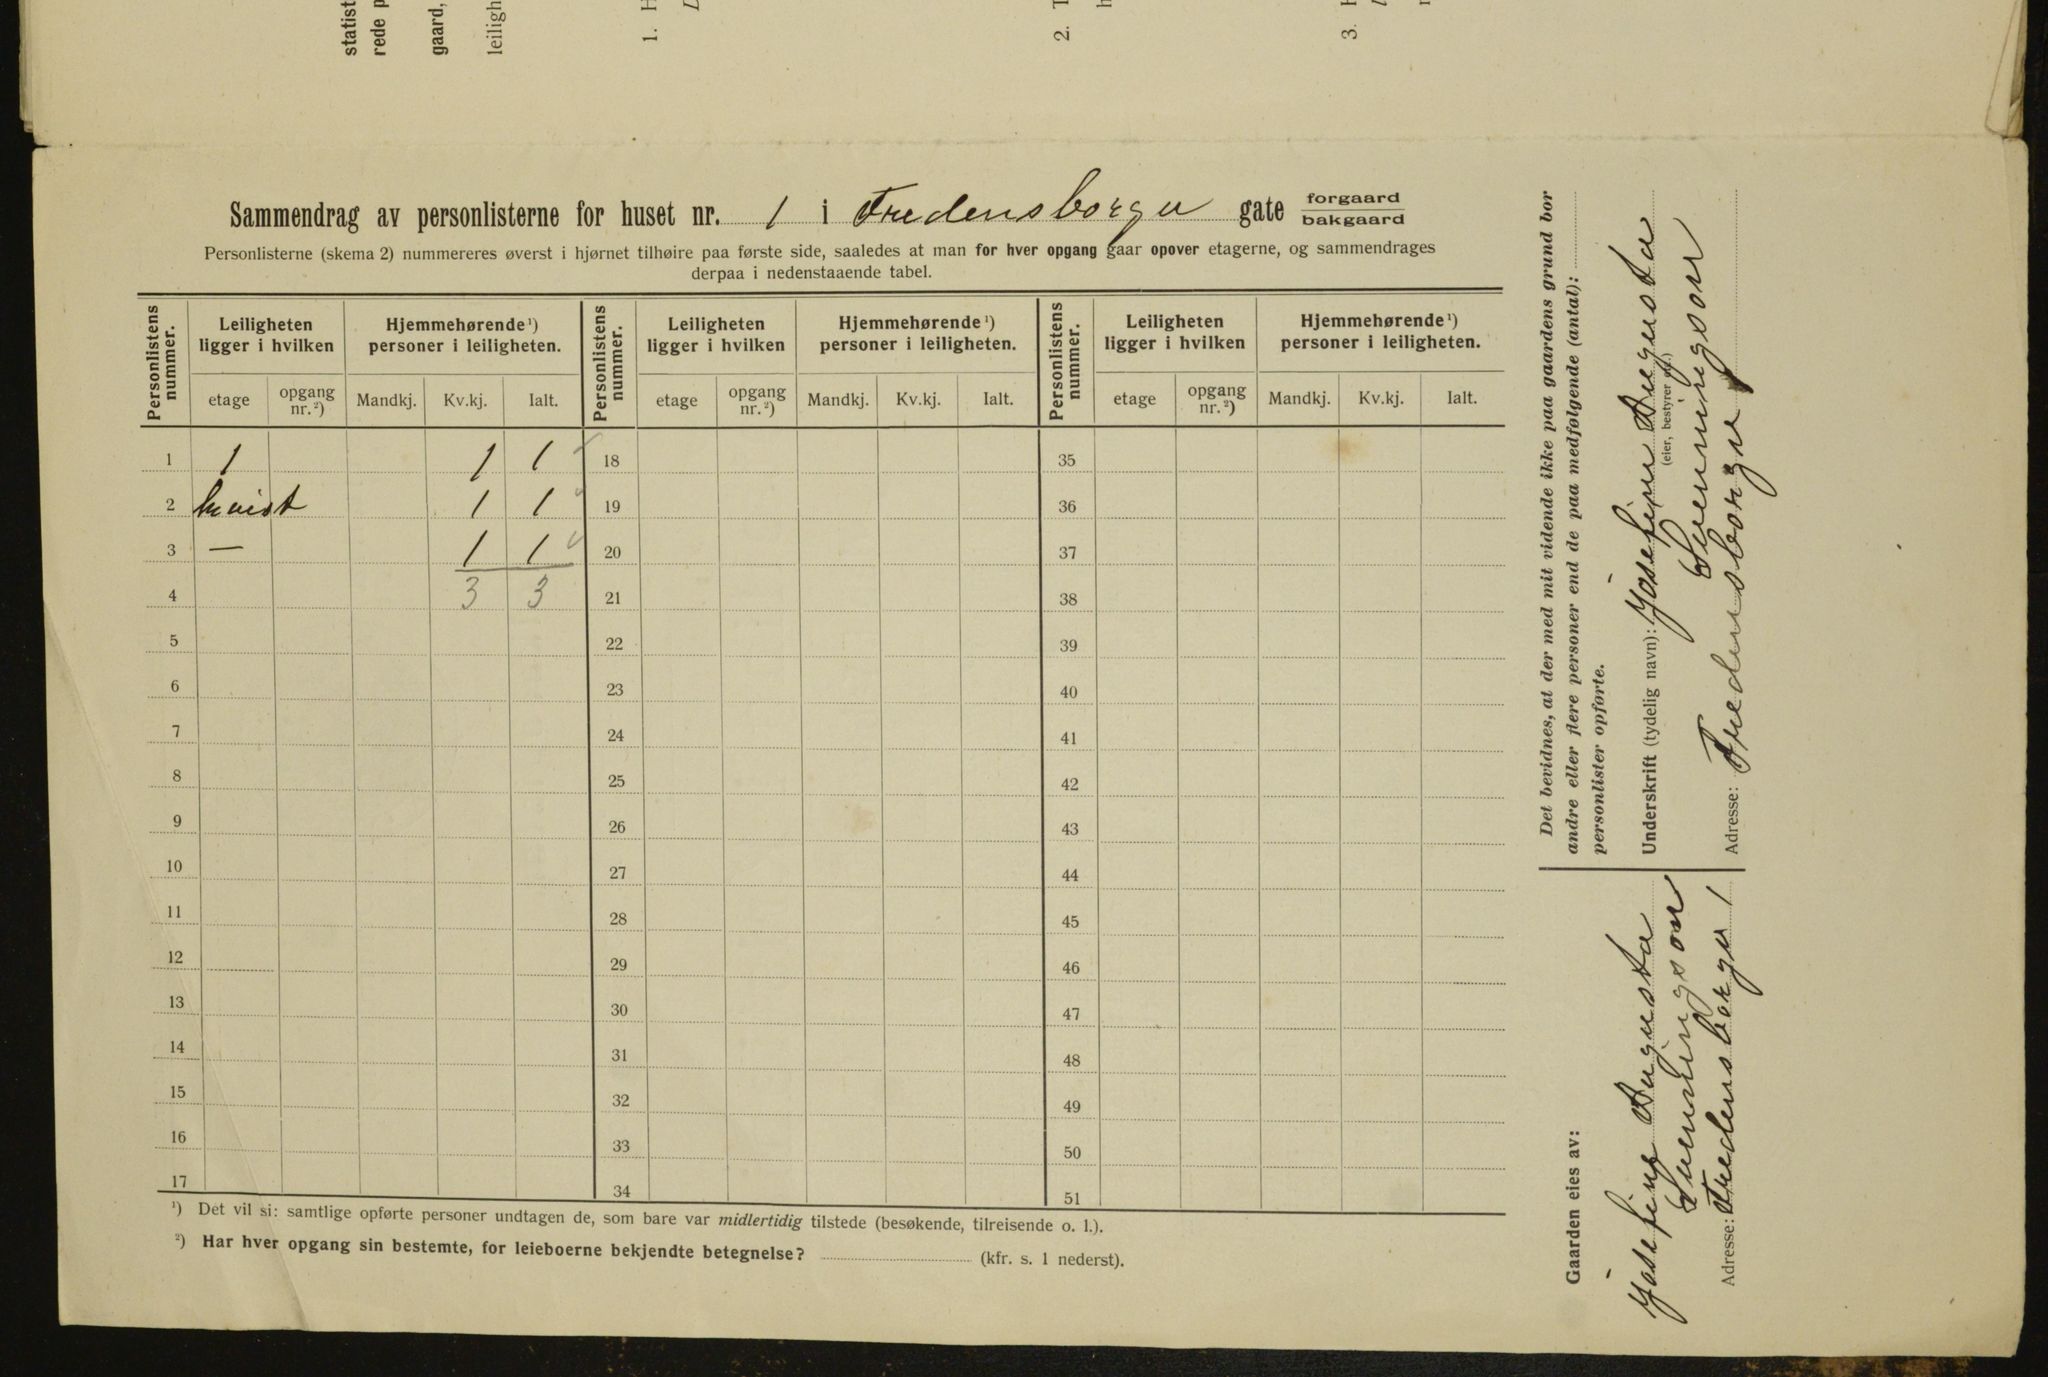 statist
rede p
gaard,
leiligh
1. H
2. T
3. H
Sammendrag av personlisterne for huset nr. 1 i Fredensborgv gate forgaard
bakgaard
Personlisterne (skema 2) nummereres øverst i hjørnet tilhøire paa første side, saaledes at man for hver opgang gaar opover etagerne, og sammendrages
derpaa i nedenstaaende tabel.
Personlistens nummer. Leiligheten ligger i hvilken Hjemmehørende ¹) personer i leiligheten. Personlistens nummer. Leiligheten ligger i hvilken Hjemmehørende ¹) personer i leiligheten. Personlistens nummer. Leiligheten ligger i hvilken Hjemmehørende ¹) personer i leiligheten.
etage opgang nr. ²) Mandkj. Kv.kj. Ialt. etage opgang nr. ²) Mandkj. Kv.kj. Ialt. etage opgang nr. ²) Mandkj. Kv.kj. Ialt.
1 1 1 1 18 35
2 kvist 1 1 19 36
3 — 1 1 20 37
4 3 3 21 38
5 22 39
6 23 40
7 24 41
8 25 42
9 26 43
10 27 44
11 28 45
12 29 46
13 30 47
14 31 48
15 32 49
16 33 50
17 34 51
¹) Det vil si: samtlige opførte personer undtagen de, som bare var midlertidig tilstede (besøkende, tilreisende o. l.).
²) Har hver opgang sin bestemte, for leieboerne bekjendte betegnelse? (kfr. s. 1 nederst).
Det bevidnes, at der med mit vidende ikke paa gaardens grund bor
andre eller flere personer end de paa medfølgende (antal):
personlister opførte.
Underskrift (tydelig navn): Josefine Augusta
(eier, bestyrer etc.)
Henningsen
Adresse: Fredensborgv 1
Gaarden eies av:
Josefine Augusta
Henningson
Adresse: Fredensborgv 1